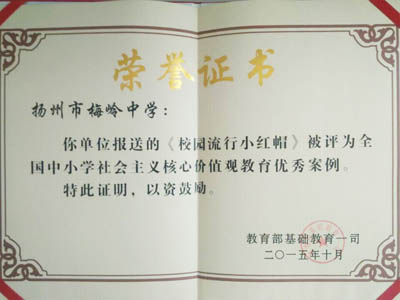 荣誉证书
扬州市梅岭中学：
你单位报送的《校园流行小红帽》被评为全
国中小学社会主义核心价值观教育优秀案例。
特此证明，以资鼓励。
教育部基础教育一司
二〇一五年十月